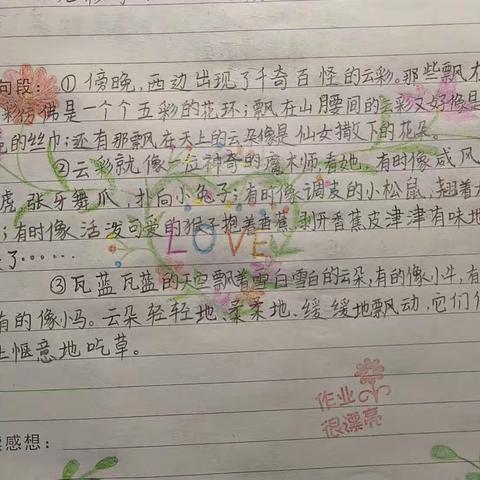 向段：① 傍晚，西边出现了千奇百怪的云彩。那些飘在
彩仿佛是一个个五彩的花环；飘在山月要间的云彩又好像是
的丝巾；还有那飘在天上的云朵像是仙女撒下的花朵。
②云彩就像一位神奇的魔术师看她，有时像威风
虎，张牙舞爪，扑向小兔子；有时像调皮的小松鼠，翘着
；有时像活泼可爱的猴子抱着香蕉，剥开香蕉皮津津有味地
了……
LOVE
③瓦蓝瓦蓝的天空飘着雪白雪白的云朵，有的像小牛，有
有的像小马。云朵轻轻地、柔柔地、缓缓地飘动，它们
惬意地吃草。
作业
很漂亮
感想：